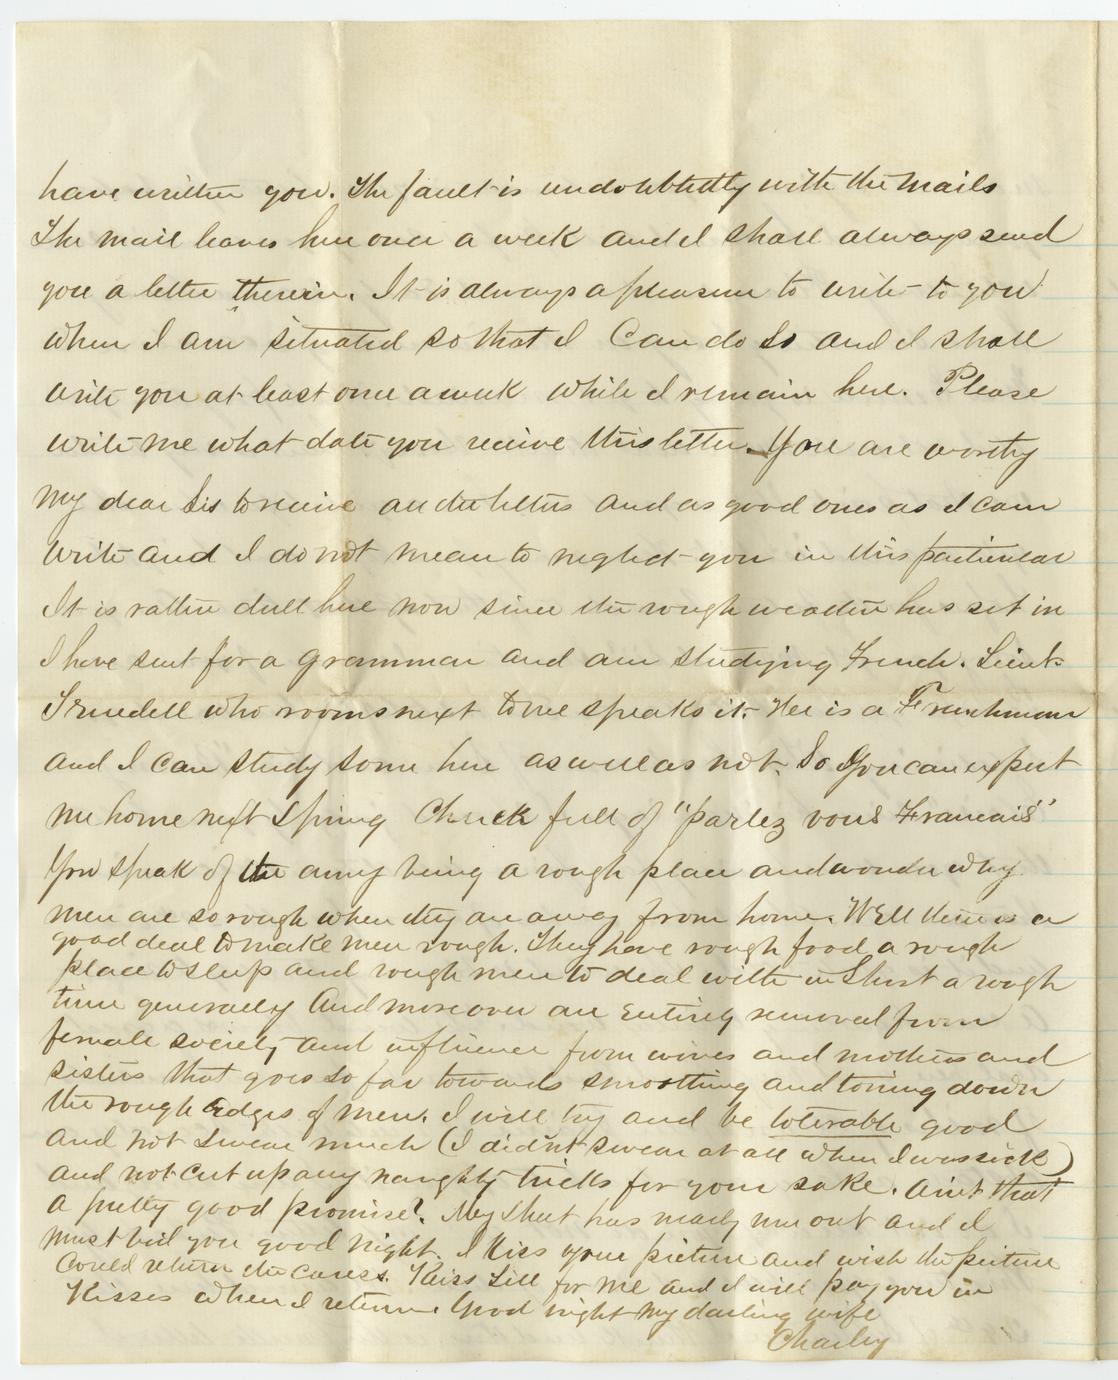 have written you. The fault is undoubtedly with the mails
The mail leaves here once a week and I shall always send
you a letter therein. It is always a pleasure to write to you
when I am situated so that I Can do so and I shall
write you at least once a week while I remain here. Please
write me what date you receive this letter. You are worthy
My dear Sis to receive all the letters and as good ones as I can
write and I do not mean to neglect you in this particular
It is rather dull here now since the rough weather has set in
I have sent for a grammar and am studying French. Lieut
Truedell who rooms next to me speaks it. Hee is a Frenchman
and I can study some here as well as not. So You can expect
me home next Spring Chuck full of "parlez vous Francais"
You speak of the army being a rough place and wonder why
men are so rough when they are away from home. Well there is a
good deal to make men rough. They have rough food a rough
place to sleep and rough men to deal with in Short a rough
time generally And moreover are Entirely removed from
female society and influence from wives and mothers and
sisters that goes so far towards smoothing and toning down
the rough Edges of men. I will try and be tolerable good
and not Swear much (I didn't swear at all when I was sick)
and not cut up any naughty tricks for your sake. Aint that
a pretty good promise? My Sheet has nearly run out and I
must bid you good night. I Kiss your picture and wish the picture
Could return the caress. Kiss Lill for me and I will pay you in
Kisses when I return. Good night My darling wife
Charley